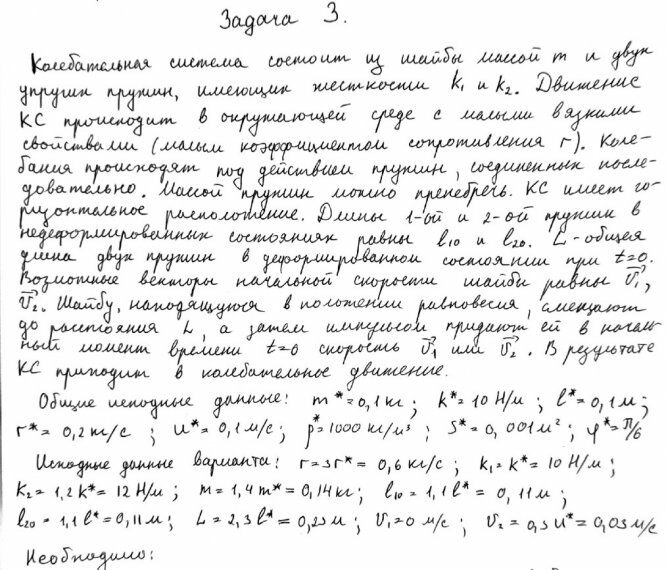 Задача 3.
Колебательная система состоит из шайбы массой m и двух
упругих пружин, имеющих жесткости k₁ и k₂. Движение
КС происходит в окружающей среде с малыми вязкими
свойствами (малым коэффициентом сопротивления r). Коле-
бания происходят под действием пружин, соединенных после-
довательно. Массой пружин можно пренебречь. КС имеет го-
ризонтальное расположение. Длины 1-ой и 2-ой пружин в
недеформированных состояниях равны l₁₀ и l₂₀. L - общая
длина двух пружин в деформированном состоянии при t=0.
Возможные векторы начальной скорости шайбы равны v⃗₁,
v⃗₂. Шайбу, находящуюся в положении равновесия, смещают
до расстояния L, а затем импульсом придают ей в началь-
ный момент времени t=0 скорость v⃗₁ или v⃗₂. В результате
КС приходит в колебательное движение.
Общие исходные данные: m*=0,1 кг; k*=10 Н/м; l*=0,1 м;
r*=0,2 кг/с; u*=0,1 м/с; ρ*=1000 кг/м³; S*=0,001 м²; φ*=π/6
Исходные данные варианта: r=3r*=0,6 кг/с; k₁=k*=10 Н/м;
k₂=1,2k*=12 Н/м; m=1,4m*=0,14 кг; l₁₀=1,1l*=0,11 м;
l₂₀=1,1l*=0,11 м; L=2,3l*=0,23 м; v₁=0 м/с; v₂=0,3u*=0,03 м/с
Необходимо: